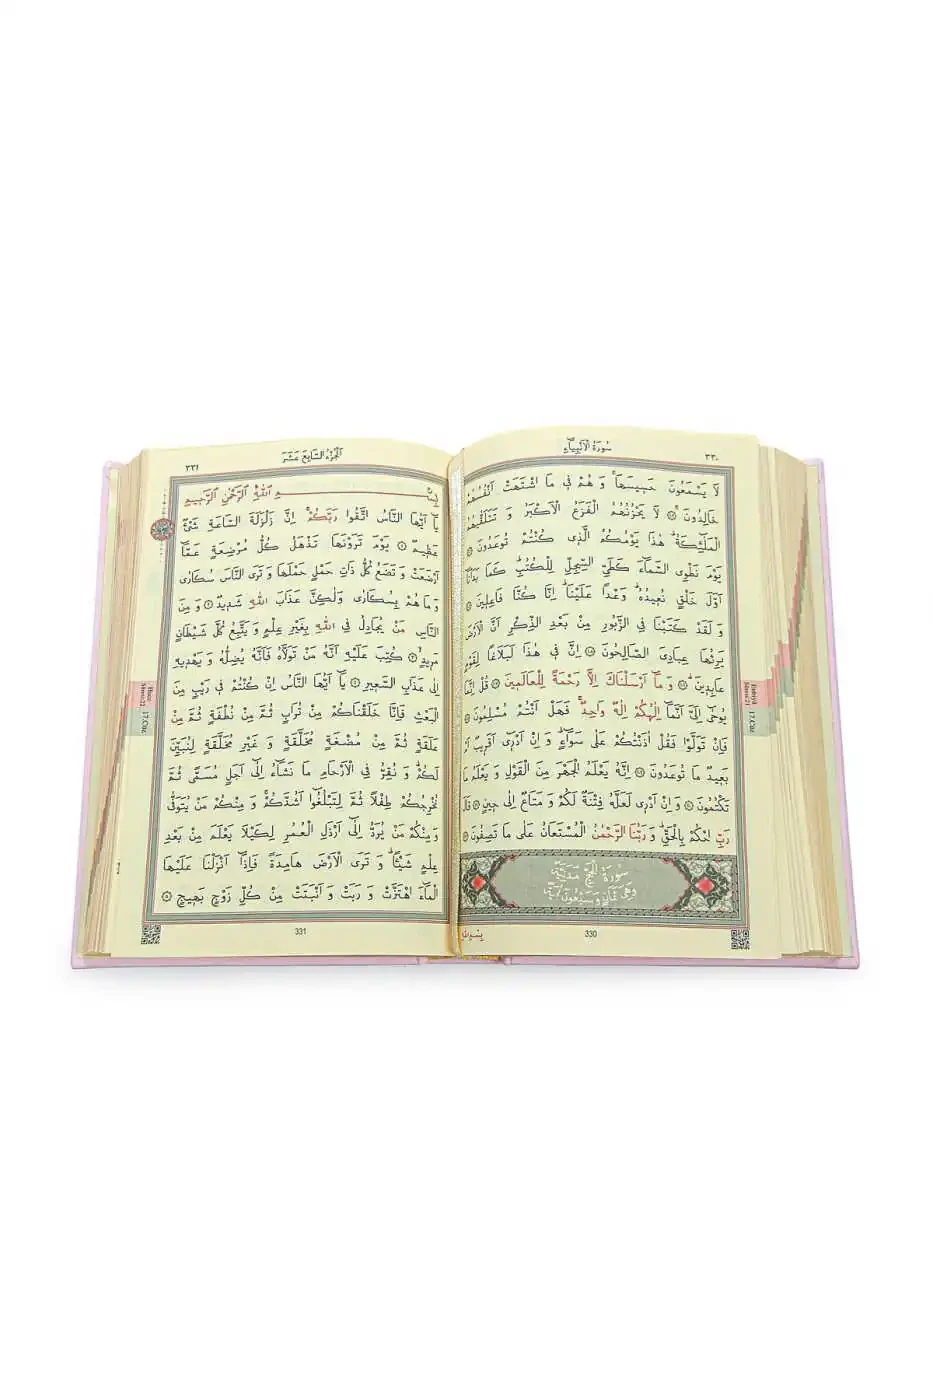 سُورَةُ الْاَنْبِيَاءِ
٣٣٠
لَا يَسْمَعُونَ حَسٖيسَهَاۚ وَ هُمْ فٖي مَا اشْتَهَتْ اَنْفُسُهُمْ
خَالِدُونَۚ لَا يَحْزُنُهُمُ الْفَزَعُ الْاَكْبَرُ وَ تَتَلَقّٰيهُمُ
الْمَلٰٓئِكَةُؕ هٰذَا يَوْمُكُمُ الَّذٖي كُنْتُمْ تُوعَدُونَ
يَوْمَ نَطْوِي السَّمَٓاءَ كَطَيِّ السِّجِلِّ لِلْكُتُبِؕ كَمَا بَدَاْنَٓا
اَوَّلَ خَلْقٍ نُعٖيدُهُؕ وَعْدًا عَلَيْنَاؕ اِنَّا كُنَّا فَاعِلٖينَ
وَ لَقَدْ كَتَبْنَا فِي الزَّبُورِ مِنْ بَعْدِ الذِّكْرِ اَنَّ الْاَرْضَ
يَرِثُهَا عِبَادِيَ الصَّالِحُونَ اِنَّ فٖي هٰذَا لَبَلَاغًا لِقَوْمٍ
عَابِدٖينَؕ وَ مَٓا اَرْسَلْنَاكَ اِلَّا رَحْمَةً لِلْعَالَمٖينَ قُلْ اِنَّمَا
يُوحٰٓى اِلَيَّ اَنَّمَٓا اِلٰهُكُمْ اِلٰهٌ وَاحِدٌۚ فَهَلْ اَنْتُمْ مُسْلِمُونَ
فَاِنْ تَوَلَّوْا فَقُلْ اٰذَنْتُكُمْ عَلٰى سَوَٓاءٍؕ وَ اِنْ اَدْرٖٓي اَقَرٖيبٌ اَمْ
بَعٖيدٌ مَا تُوعَدُونَ اِنَّهُ يَعْلَمُ الْجَهْرَ مِنَ الْقَوْلِ وَ يَعْلَمُ مَا
تَكْتُمُونَ وَ اِنْ اَدْرٖي لَعَلَّهُ فِتْنَةٌ لَكُمْ وَ مَتَاعٌ اِلٰى حٖينٍ قَالَ
رَبِّ احْكُمْ بِالْحَقِّؕ وَ رَبُّنَا الرَّحْمٰنُ الْمُسْتَعَانُ عَلٰى مَا تَصِفُونَ
سُورَةُ الْحَجِّ مَدَنِيَّةٌ
وَهِيَ ثَمَانٍ وَ سَبْعُونَ اٰيَةً
330
Enbiyâ
Sûresi:21
17.Cüz
الْجُزْءُ السَّابِعُ عَشَرَ
٣٣١
اللّٰهِ الرَّحْمٰنِ الرَّحٖيمِ
يَٓا اَيُّهَا النَّاسُ اتَّقُوا رَبَّكُمْۚ اِنَّ زَلْزَلَةَ السَّاعَةِ شَيْءٌ
عَظٖيمٌ يَوْمَ تَرَوْنَهَا تَذْهَلُ كُلُّ مُرْضِعَةٍ عَمَّٓا
اَرْضَعَتْ وَ تَضَعُ كُلُّ ذَاتِ حَمْلٍ حَمْلَهَا وَ تَرَى النَّاسَ سُكَارٰى
وَ مَا هُمْ بِسُكَارٰى وَلٰكِنَّ عَذَابَ اللّٰهِ شَدٖيدٌ وَ مِنَ
النَّاسِ مَنْ يُجَادِلُ فِي اللّٰهِ بِغَيْرِ عِلْمٍ وَ يَتَّبِعُ كُلَّ شَيْطَانٍ
مَرٖيدٍۙ كُتِبَ عَلَيْهِ اَنَّهُ مَنْ تَوَلَّاهُ فَاَنَّهُ يُضِلُّهُ وَ يَهْدٖيهِ
اِلٰى عَذَابِ السَّعٖيرِ يَٓا اَيُّهَا النَّاسُ اِنْ كُنْتُمْ فٖي رَيْبٍ مِنَ
الْبَعْثِ فَاِنَّا خَلَقْنَاكُمْ مِنْ تُرَابٍ ثُمَّ مِنْ نُطْفَةٍ ثُمَّ مِنْ
عَلَقَةٍ ثُمَّ مِنْ مُضْغَةٍ مُخَلَّقَةٍ وَ غَيْرِ مُخَلَّقَةٍ لِنُبَيِّنَ
لَكُمْؕ وَ نُقِرُّ فِي الْاَرْحَامِ مَا نَشَٓاءُ اِلٰٓى اَجَلٍ مُسَمًّى ثُمَّ
نُخْرِجُكُمْ طِفْلًا ثُمَّ لِتَبْلُغُٓوا اَشُدَّكُمْۚ وَ مِنْكُمْ مَنْ يُتَوَفّٰى
وَ مِنْكُمْ مَنْ يُرَدُّ اِلٰٓى اَرْذَلِ الْعُمُرِ لِكَيْلَا يَعْلَمَ مِنْ بَعْدِ
عِلْمٍ شَيْـًٔاؕ وَ تَرَى الْاَرْضَ هَامِدَةً فَاِذَٓا اَنْزَلْنَا عَلَيْهَا
الْمَٓاءَ اهْتَزَّتْ وَ رَبَتْ وَ اَنْبَتَتْ مِنْ كُلِّ زَوْجٍ بَهٖيجٍ
331
Hac
Sûresi:22
17.Cüz